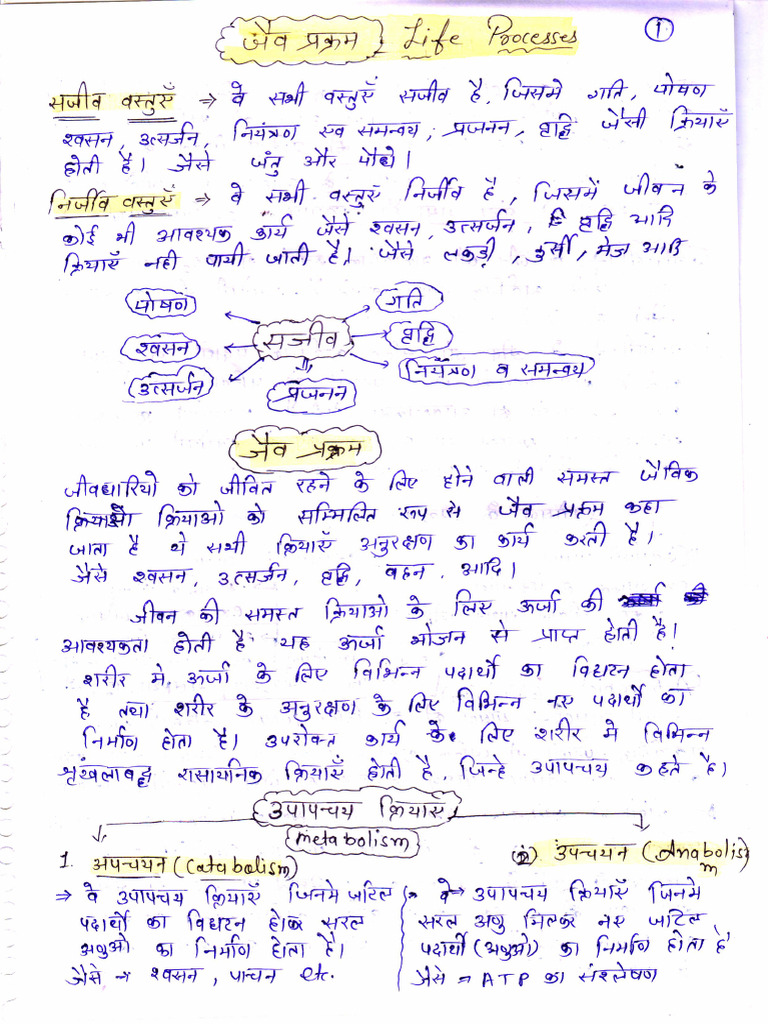 जैव प्रक्रम : Life Processes
1
सजीव वस्तुएँ ⇒ वे सभी वस्तुएँ सजीव है, जिसमे गति, पोषण
श्वसन, उत्सर्जन, नियंत्रण एव समन्वय, प्रजनन, वृद्धि जैसी क्रियाएँ
होती है। जैसे जंतु और पौधे।
निर्जीव वस्तुएँ ⇒ वे सभी वस्तुएँ निर्जीव है, जिसमें जीवन के
कोई भी आवश्यक कार्य जैसे श्वसन, उत्सर्जन, वृद्धि आदि
क्रियाएँ नही पायी जाती है। जैसे लकड़ी, कुर्सी, मेज आदि
पोषण
गति
सजीव
श्वसन
वृद्धि
उत्सर्जन
नियंत्रण व समन्वय
प्रजनन
जैव प्रक्रम
जीवधारियो को जीवित रहने के लिए होने वाली समस्त जैविक
क्रियाओ को सम्मिलित रूप से जैव प्रक्रम कहा
जाता है ये सभी क्रियाएँ अनुरक्षण का कार्य करती है।
जैसे श्वसन, उत्सर्जन, वृद्धि, वहन, आदि।
जीवन की समस्त क्रियाओ के लिए ऊर्जा की
आवश्यकता होती है यह ऊर्जा भोजन से प्राप्त होती है।
शरीर मे ऊर्जा के लिए विभिन्न पदार्थो का विघटन होता
है तथा शरीर के अनुरक्षण के लिए विभिन्न नए पदार्थो का
निर्माण होता है। उपरोक्त कार्य के लिए शरीर मे विभिन्न
शृंखलाबद्ध रासायनिक क्रियाएँ होती है, जिन्हे उपापचय कहते है।
उपापचय क्रियाएँ
(metabolism)
1. अपचयन (Catabolism)
⇒ वे उपापचय क्रियाएँ जिनमे जटिल
पदार्थो का विघटन होकर सरल
अणुओ का निर्माण होता है।
जैसे → श्वसन, पाचन etc.
(2) उपचयन (Anabolism)
वे उपापचय क्रियाएँ जिनमे
सरल अणु मिलकर नए जटिल
पदार्थो (अणुओ) का निर्माण होता है
जैसे = ATP का संश्लेषण